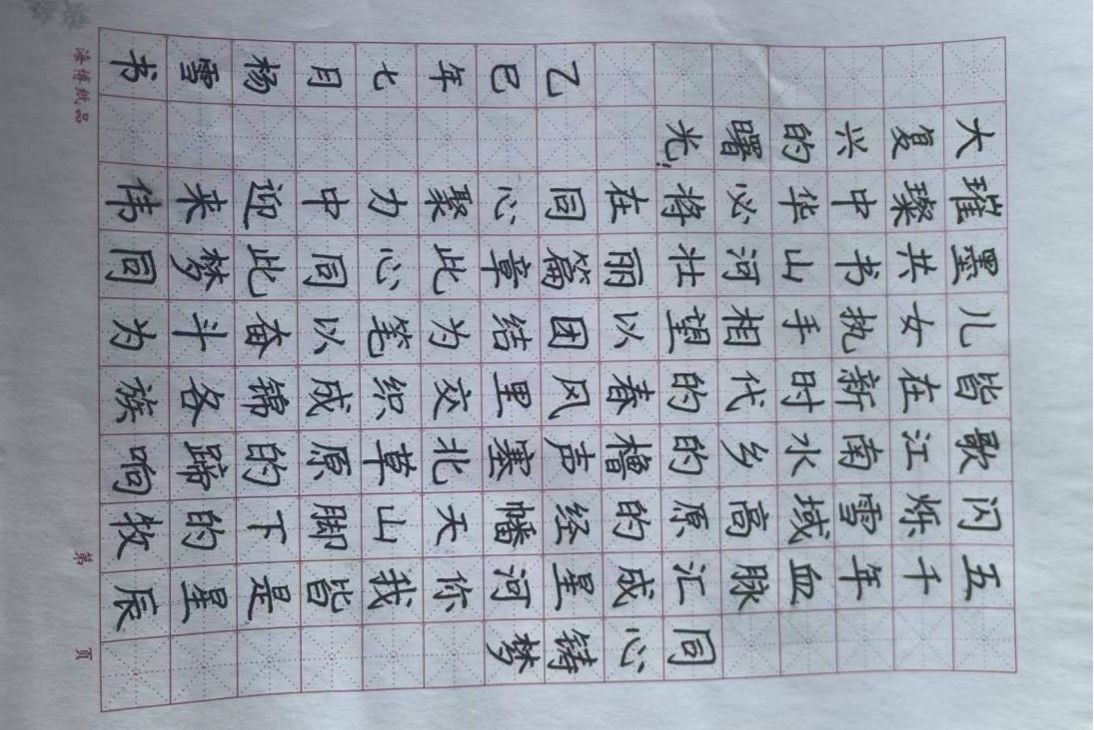 同心铸梦
五千年血脉汇成星河你我皆是星辰
闪烁雪域高原的经幡天山脚下的牧
歌江南水乡的橹声塞北草原的蹄响
皆在新时代的春风里交织成锦各族
儿女执手相望以团结为笔以奋斗为
墨共书山河壮丽篇章此心同此梦同
璀璨中华必将在同心聚力中迎来伟
大复兴的曙光!
乙巳年七月杨雪书
海博纸品 第 页